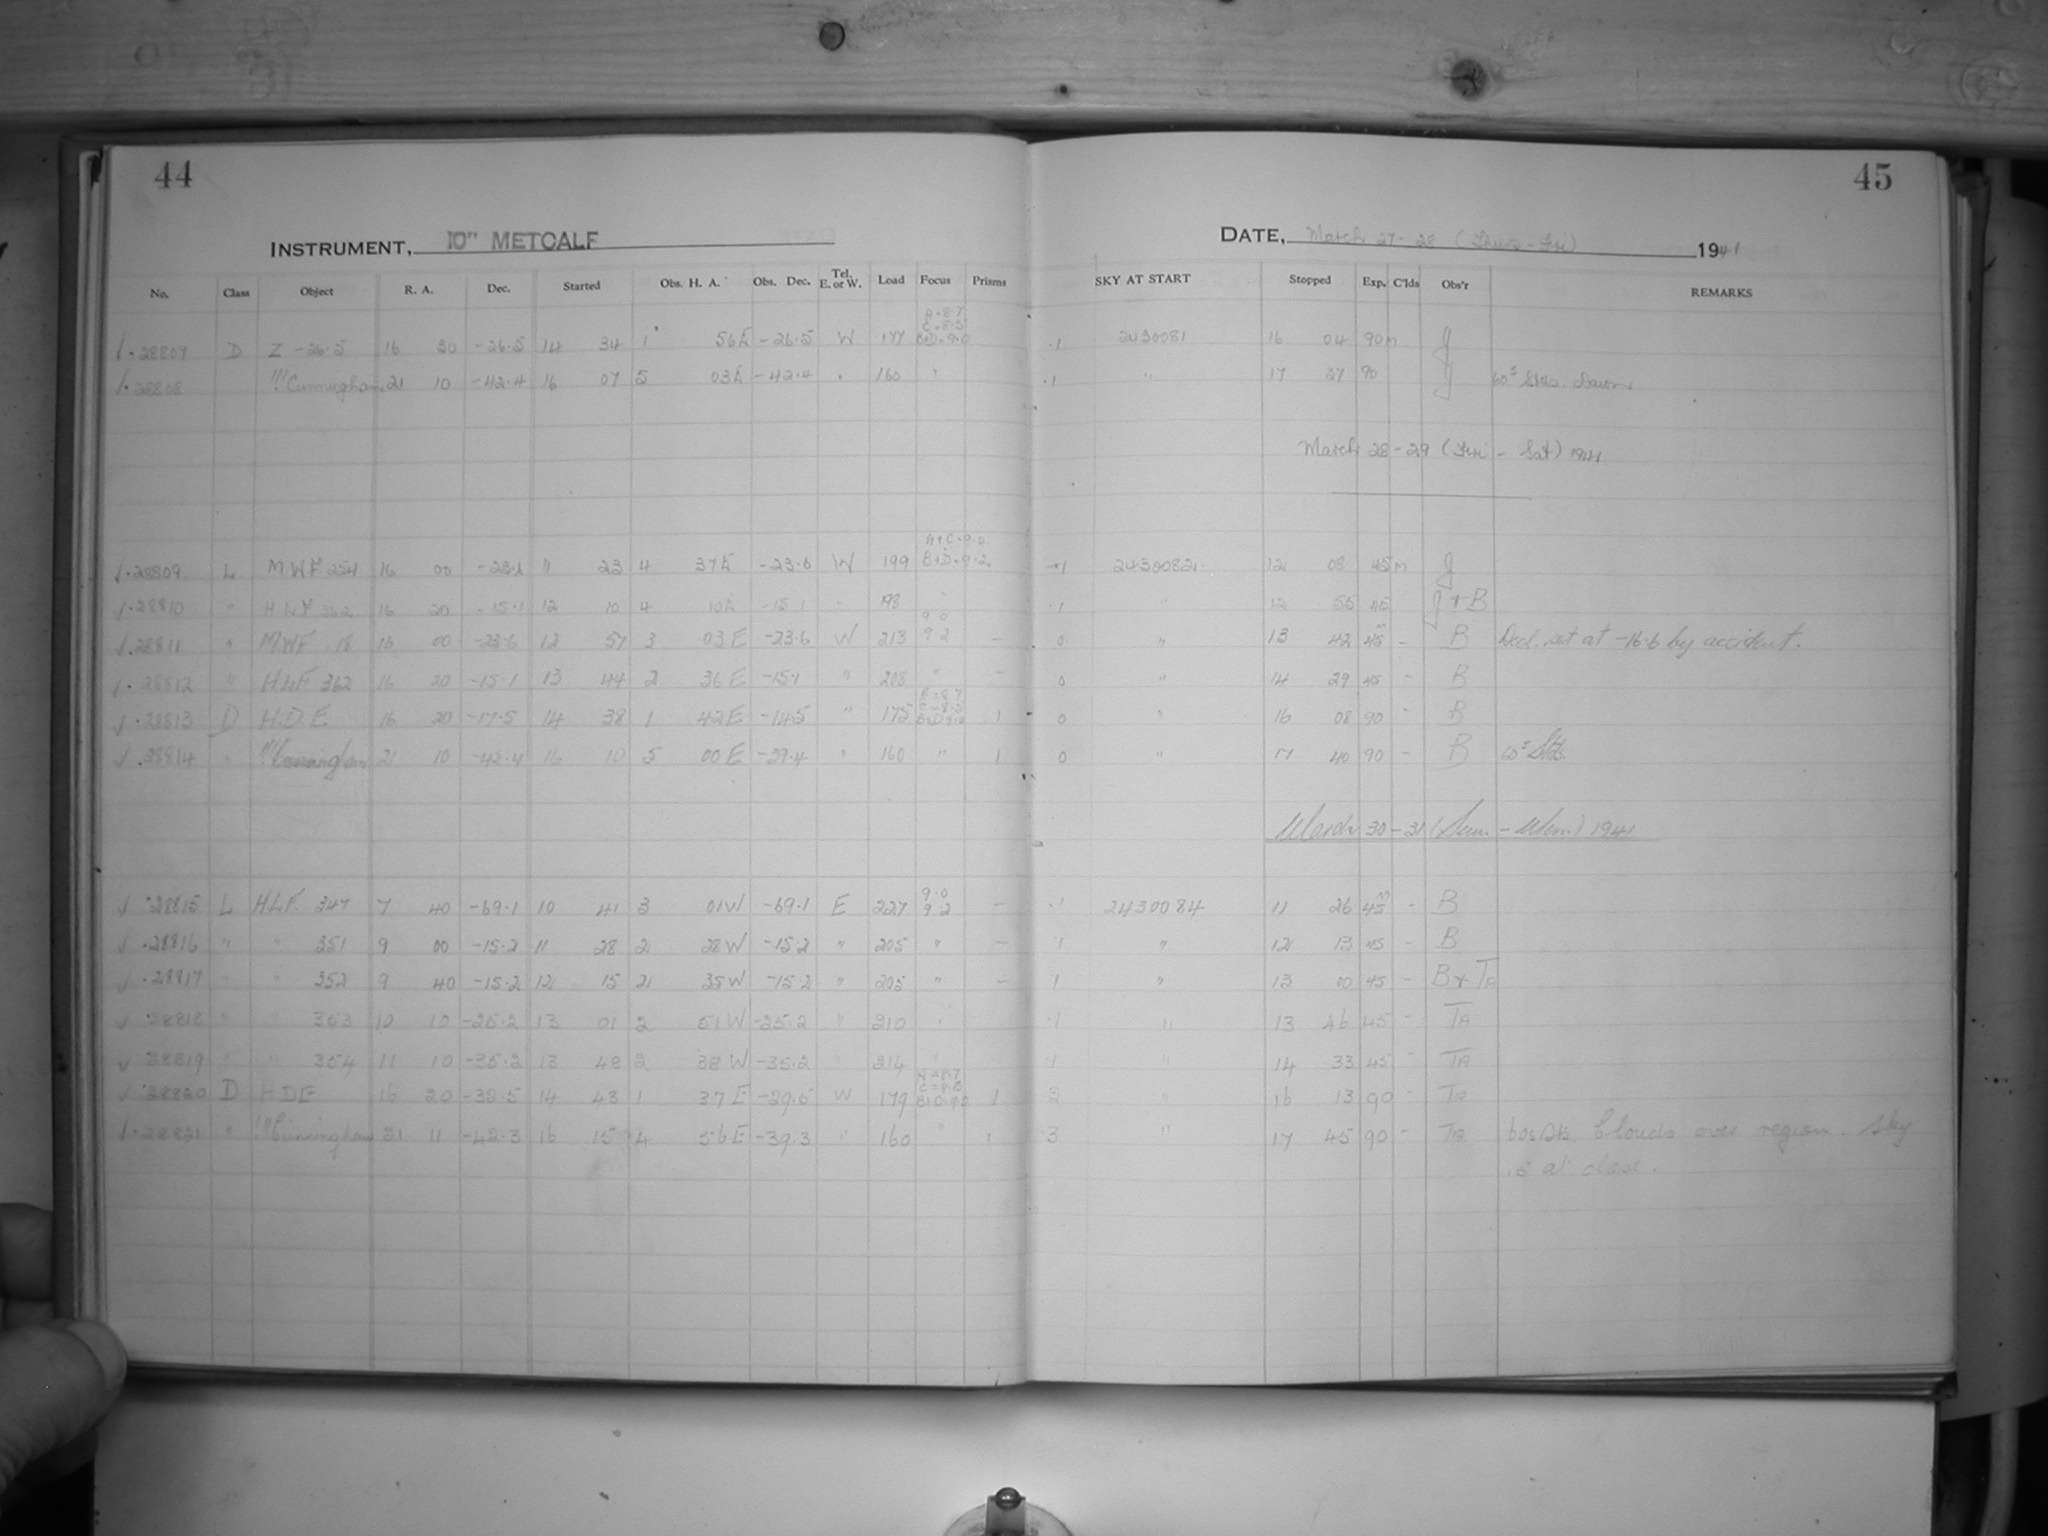 44
45
INSTRUMENT, 10" METCALF
DATE, March 27-28 (Thurs-Fri) 1941
No. Class Object R. A. Dec. Started Obs. H. A. Obs. Dec. Tel. E. or W. Load Focus Prisms SKY AT START Stopped Exp. C'lds Obs'r REMARKS
28807 D Z -26.5 16 30 -26.5 14 34 1 56E -26.5 W 177 B+D=9.0 .1 2430081 16 04 90m J
28808 !!!Cunningham 21 10 -42.4 16 07 5 03E -42.4 " 160 " .1 " 17 37 90 J 60s Stds. Dawn.
March 28-29 (Fri - Sat) 1941
28809 L MWF 254 16 00 11 23 4 37E -23.6 W 199 A+C=9.0 B+D=9.2 2430082 12 08 45m J
28810 " HLF 362 16 20 -15.1 12 10 4 10E -15.1 " 198 " .1 " 12 55 45 J+B
28811 " MWF 16 00 -23.6 12 57 3 03E -23.6 W 213 9.0 9.2 - 0 " 13 42 45m - B Decl. set at -16.6 by accident.
28812 " HLF 362 16 20 -15.1 13 44 2 36E -15.1 " 208 " - 0 " 14 29 45 - B
28813 D H.D.E. 16 20 -17.5 14 38 1 42E -14.5 " 175 B+D=9.0 1 0 " 16 08 90 - B
28814 " !!!Cunningham 21 10 -42.4 16 10 5 00E -39.4 " 160 " 1 0 " 17 40 90 - B 60s Stds.
March 30-31 (Sun. - Mon.) 1941
28815 L HLF. 347 7 40 -69.1 10 41 3 01W -69.1 E 227 9.0 9.2 - .1 2430084 11 26 45m - B
28816 " " 351 9 00 -15.2 11 28 2 28W -15.2 " 205 " - 1 " 12 13 45 - B
28817 " " 352 9 40 -15.2 12 15 2 35W -15.2 " 205 " - 1 " 13 00 45 - B+TA
28818 " " 353 10 10 -25.2 13 01 2 51W -25.2 " 210 " .1 " 13 46 45 - TA
28819 " " 354 11 10 -35.2 13 48 2 38W -35.2 " 214 " 1 " 14 33 45 - TA
28820 D HDE 16 20 -32.5 14 43 1 37E -29.5 W 179 B+D=9.0 1 2 " 16 13 90 - TA
28821 " !!!Cunningham 21 11 -42.3 16 15 4 56E -39.3 " 160 " 1 3 " 17 45 90 - TA 60s Stds. Clouds over region. Sky
at close.